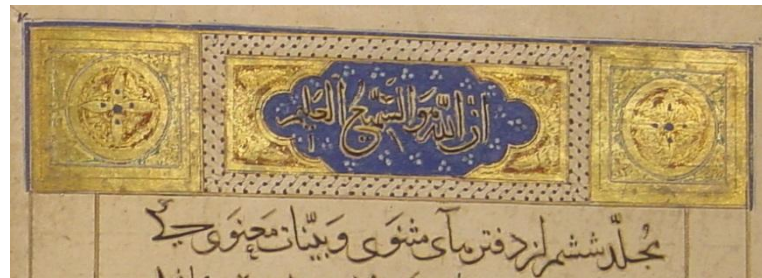 ان الله هو السميع العليم
مجلّد ششم از دفترهای مثنوی و بیّنات معنوی کی